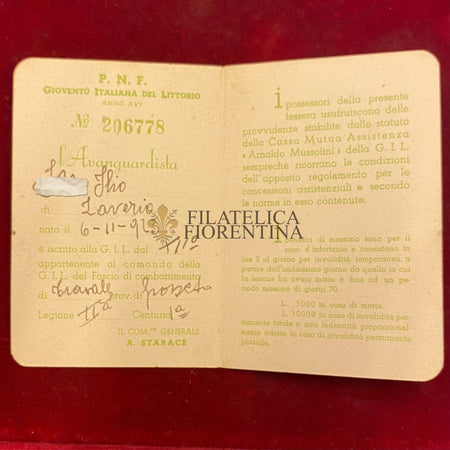 P. N. F.
GIOVENTÙ ITALIANA DEL LITTORIO
ANNO XVI
№ 206778
l'Avanguardista
Ilio
di Zaveria
nato il 6-11-92
è iscritto alla G.I.L. dal XII°
appartenente al comando della
G.I.L. del Fascio di combattimento
di Travale prov. di Grosseto
Legione IIª Centuria 1ª
IL COM.TE GENERALE
A. STARACE
i possessori della presente
tessera usufruiscono delle
provvidenze stabilite dallo statuto
della Cassa Mutua Assistenza
« Arnaldo Mussolini » della G.I.L.
semprechè ricorrano le condizioni
dell'apposito regolamento per le
concessioni assistenziali e secondo
le norme in esso contenute.
I benefici di massima sono per il
caso d'infortunio e consistono in
lire 2 al giorno per invalidità temporanea a
partire dall'undicesimo giorno da quello in cui
la lesione ha avuto inizio e fino ad un pe-
riodo massimo di giorni 70,
L. 5000 in caso di morte.
L. 30000 in caso di invalidità per-
manente totale o una indennità proporzional-
mente ridotta in caso d'invalidità permanente
parziale.
FILATELICA
FIORENTINA